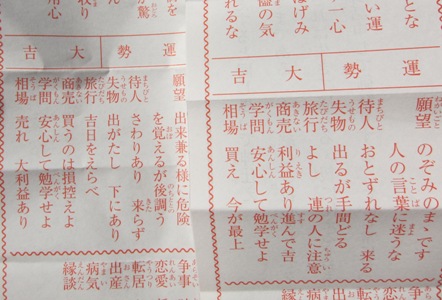 とな
い運
一心
はげみ
の気
れるな
運勢 大吉
願望 のぞみのまゝです
人の言葉に迷うな
待人 おとずれなし 来る
失物 出るが手間どる
旅行 よし 連の人に注意
商売 利益あり進んで吉
学問 安心して勉学せよ
相場 買え 今が最上
争事
恋愛
転居
を
が驚
り
用心
運勢 大吉
願望 出来兼る様に危険
を覚えるが後調う
待人 さわりあり 来らず
失物 出がたし 下にあり
旅行 吉日をえらべ
商売 買うのは損控えよ
学問 安心して勉学せよ
相場 売れ 大利益あり
争事
恋愛
転居
出産
病気
縁談